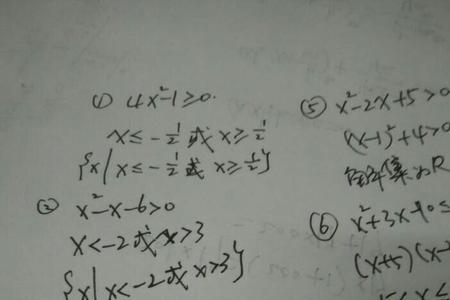 ① 4x²-1≥0.
x≤-1/2或x≥1/2
{x|x≤-1/2或x≥1/2}
② x²-x-6>0
x<-2或x>3
{x|x<-2或x>3}
⑤ x²-2x+5>0
(x-1)²+4>0
解集为R
⑥ x²+3x-10≤
(x+5)(x-